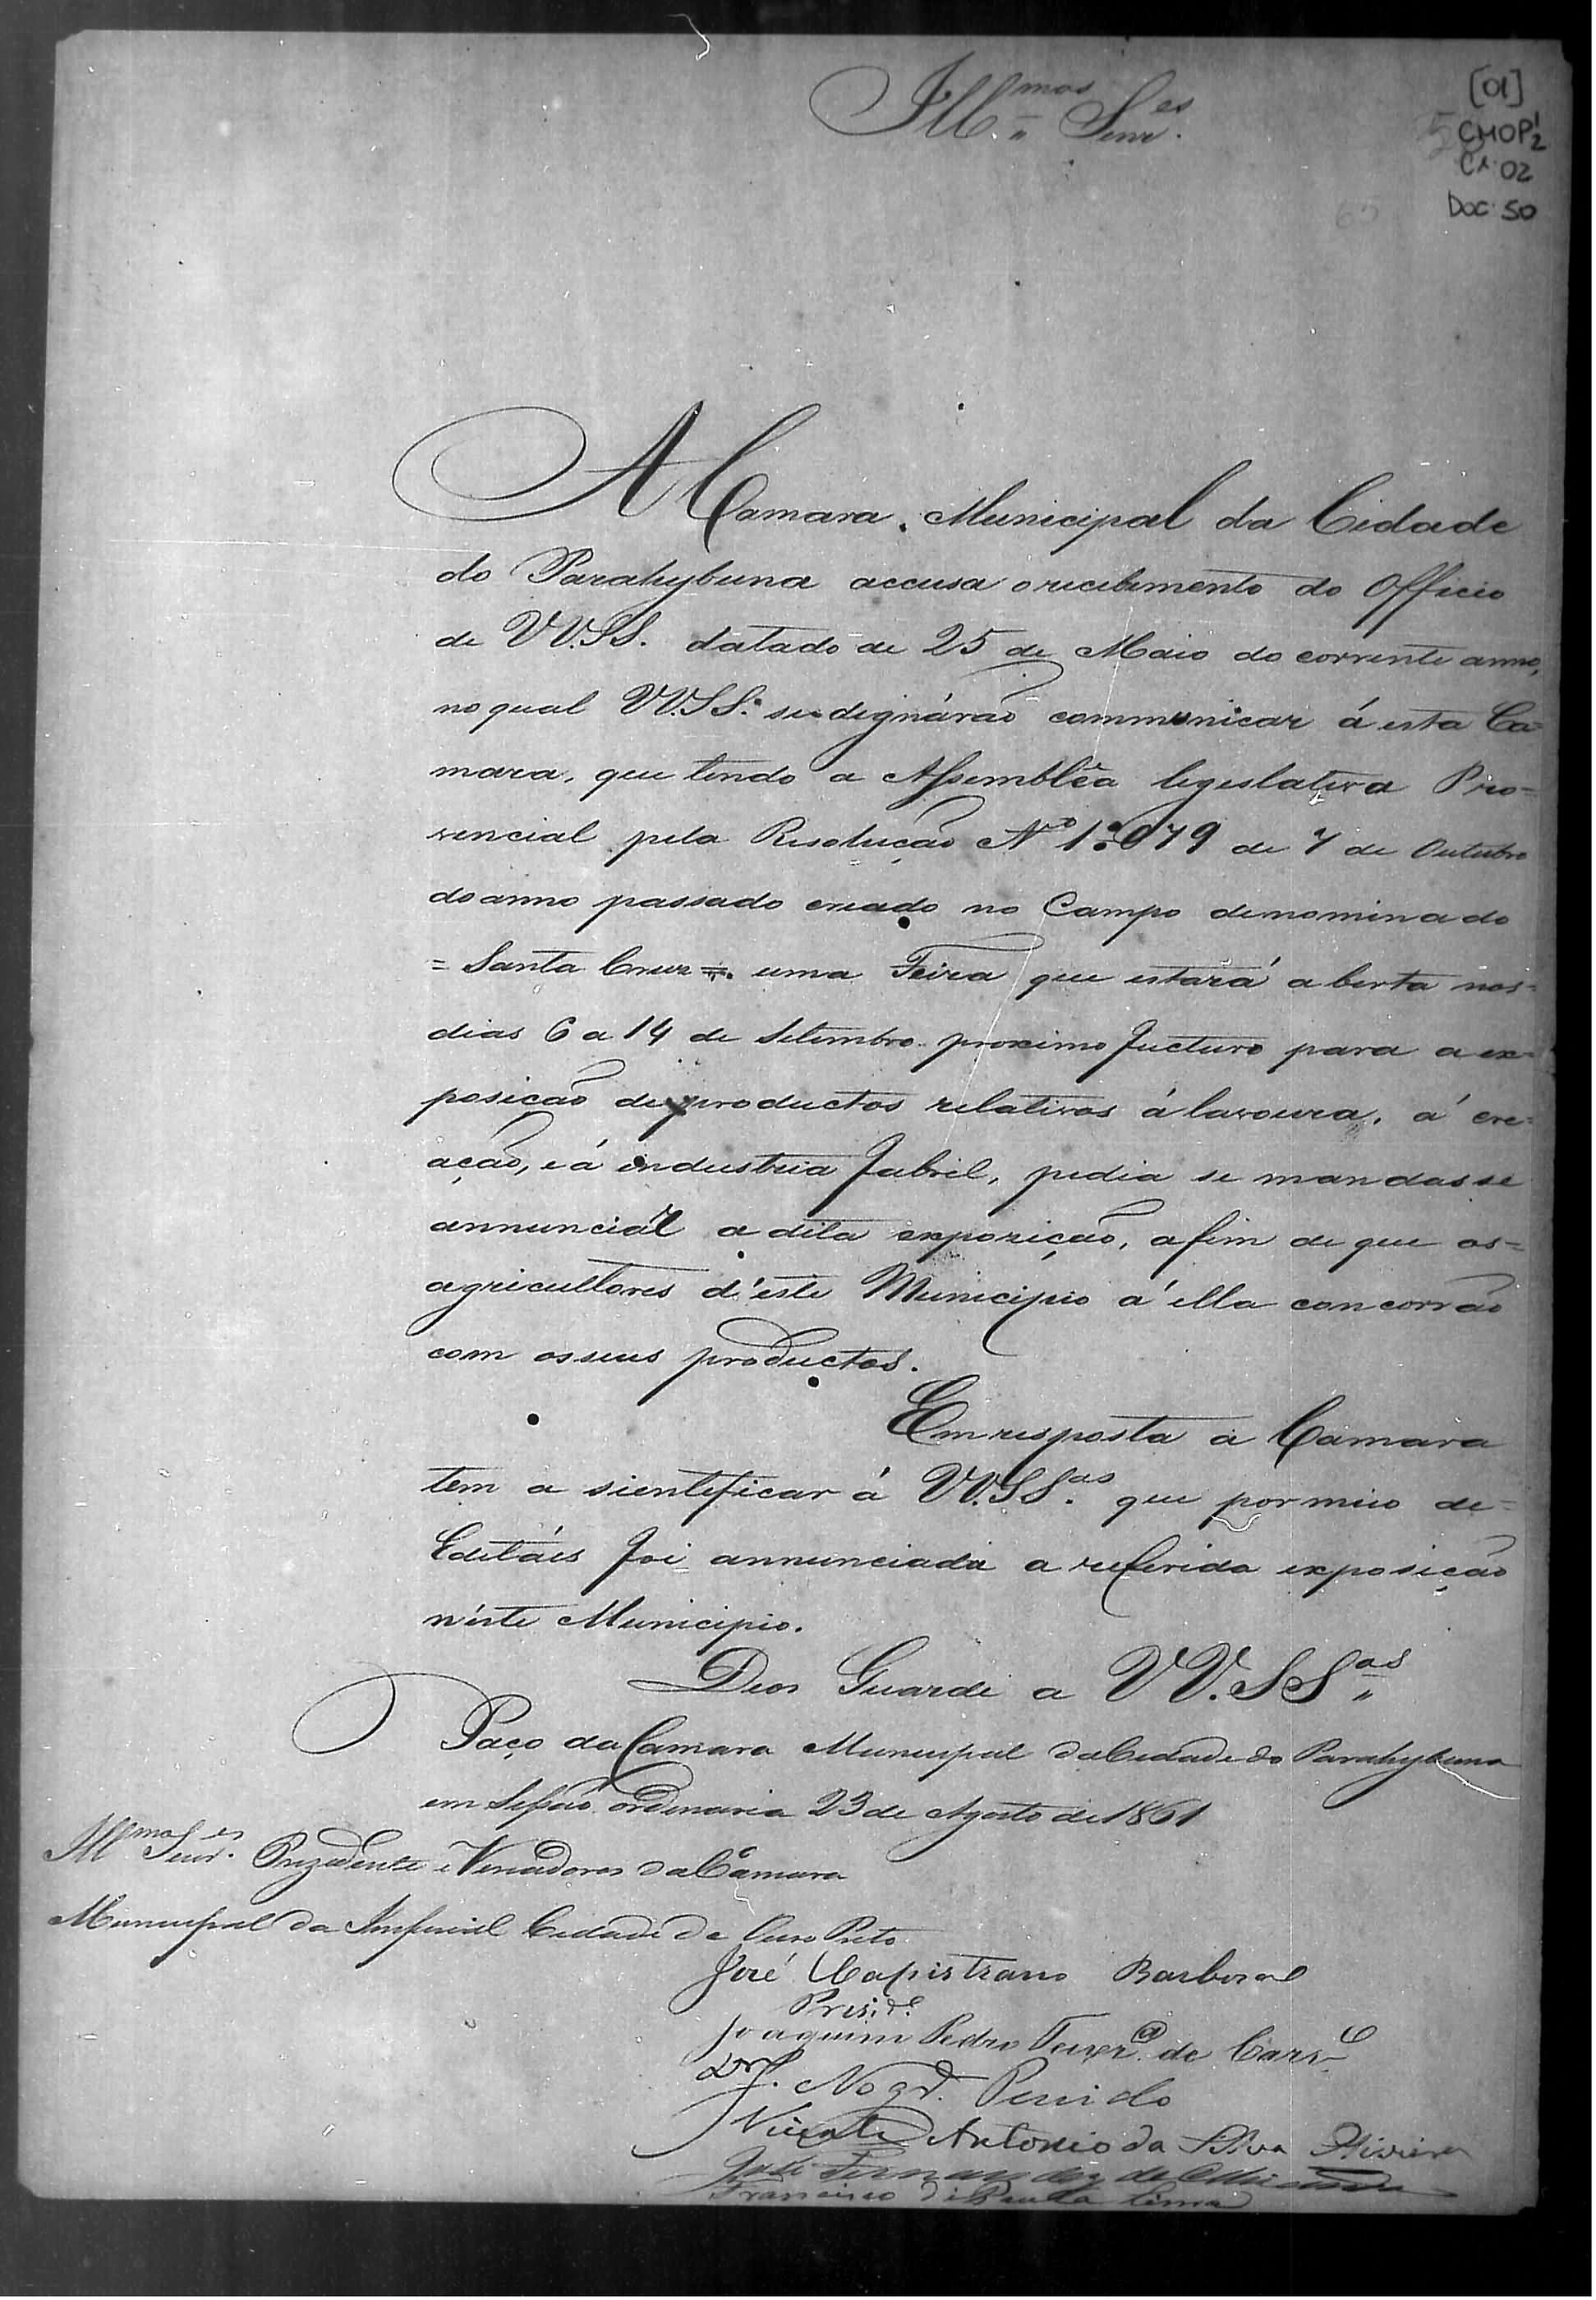 Ill.mos Senr.es
[01]
CMOP 1/2
CX. 02
Doc. 50
A Camara Municipal da Cidade
do Parahybuna accusa o recebimento do Officio
de VV.SS. datado de 25 de Maio do corrente anno,
no qual VV.SS.as se dignárão communicar á esta Ca=
mara, que tendo a Assemblêa legislativa Pro=
vencial pela Resolução Nº 1:079 de 7 de Outubro
do anno passado creado no Campo denominado
= Santa Cruz = uma Feira que estará aberta nos=
dias 6 a 14 de Setembro proximo fucturo para a ex=
posição de productos relativos á lavoura, á cre=
ação, e á industria fabril, pedia se mandasse
annunciar a dita expozição, afim de que os=
agricultores d'este Municipio á ella concorrão
com os seus productos.
Em resposta a Camara
tem a sientificar á VV.SS.as que por meio de=
Editáes foi annunciada a referida exposição
n'este Municipio.
Deos Guarde a VV.SS.as
Paço da Camara Municipal da Cidade do Parahybuna
em Sessão ordinaria 23 de Agosto de 1861
Ill.mos Senr.es Prezidente e Vereadores da Camara
Municipal da Imperial Cidade de Ouro Preto
José Capistrano Barbosa
Presid.e
Joaquim Pedro Teixr.a de Carv.o
Dr. J. Nogr.a Penido
Vicente Antonio da Silva
José Fernandes de
Francisco de Paula Lima